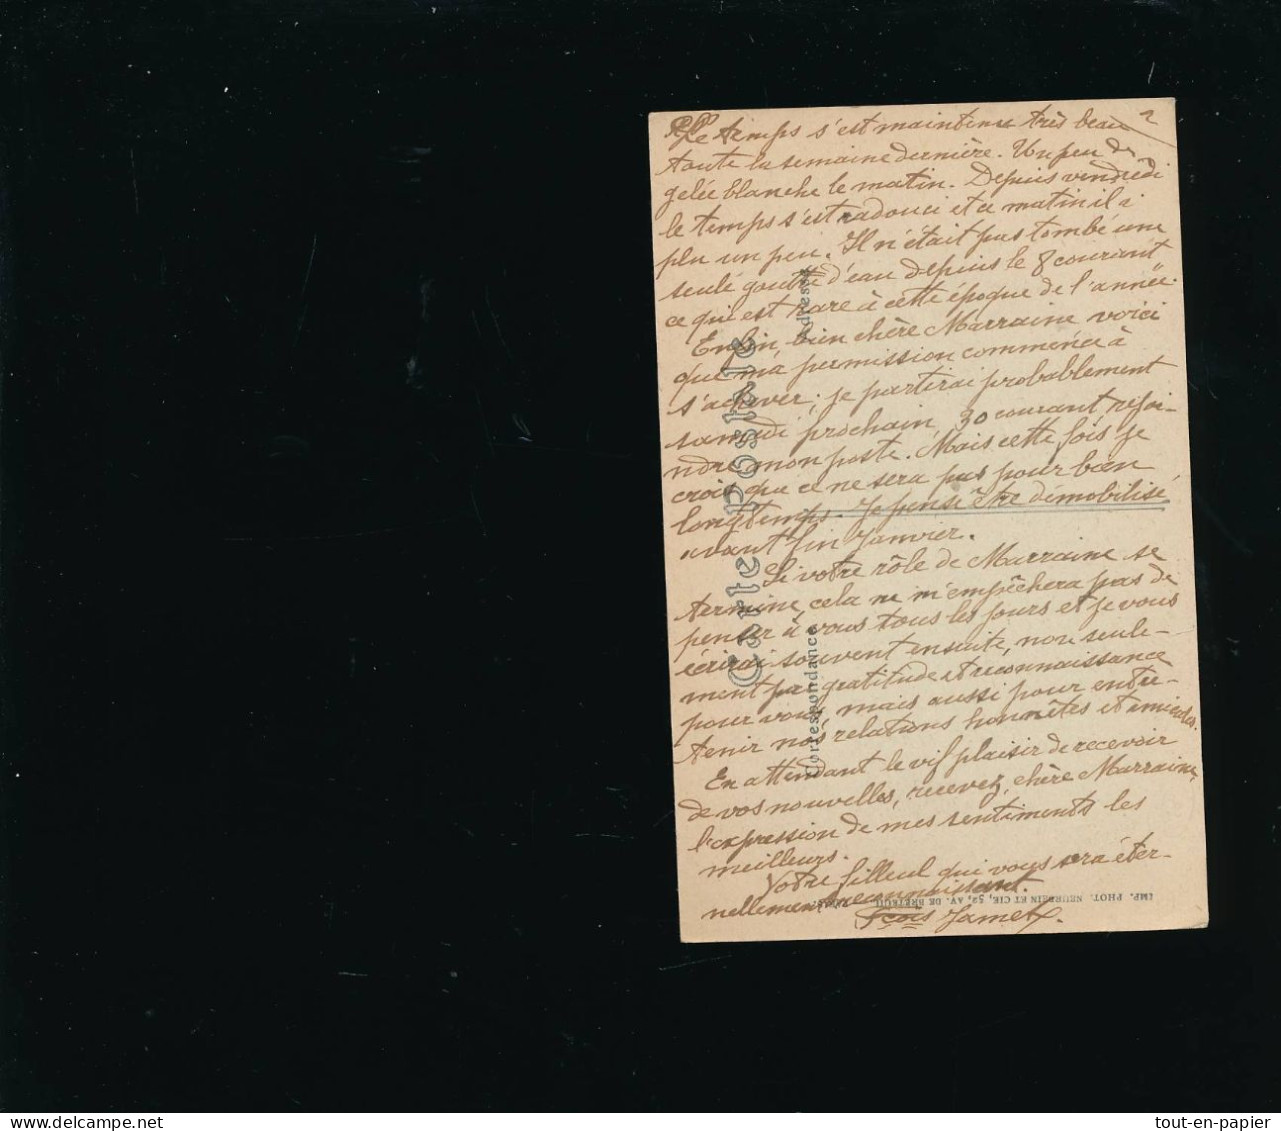 Le temps s'est maintenu très beau 2
toute la semaine dernière. Un peu de
gelée blanche le matin. Depuis vendredi
le temps s'est radouci et ce matin il a
plu un peu. Il n'était pas tombé une
seule goutte d'eau depuis le 8 courant
ce qui est rare à cette époque de l'année.
Enfin, bien chère Marraine voici
que ma permission commence à
s'achever; je partirai probablement
samedi prochain, 30 courant rejoi-
ndre mon poste. Mais cette fois je
crois que ce ne sera pas pour bien
longtemps. Je pense être démobilisé
avant fin Janvier.
Si votre rôle de Marraine se
termine, cela ne m'empêchera pas de
penser à vous tous les jours et je vous
écrirai souvent ensuite, non seule-
ment par gratitude et reconnaissance
pour vous, mais aussi pour entre-
tenir nos relations honnêtes et amicales.
En attendant le vif plaisir de recevoir
de vos nouvelles, recevez, chère Marraine,
l'expression de mes sentiments les
meilleurs.
Votre filleul qui vous sera éter-
nellement reconnaissant.
Fçois Jamet.
Carte Postale
Correspondance
Adresse
IMP. PHOT. NEURDEIN ET CIE, 52, AV. DE BRETEUIL
tout-en-papier